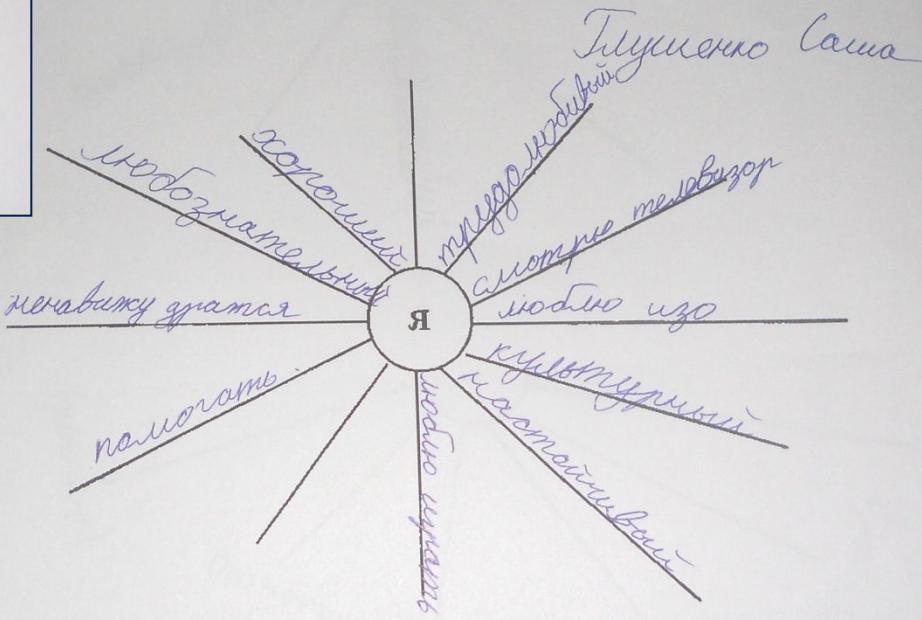 Глушенко Саша
трудолюбивый
смотрю телевизор
люблю изо
культурный
настойчивый
люблю играть
помогать
ненавижу дратся
любознательный
хороший
Я